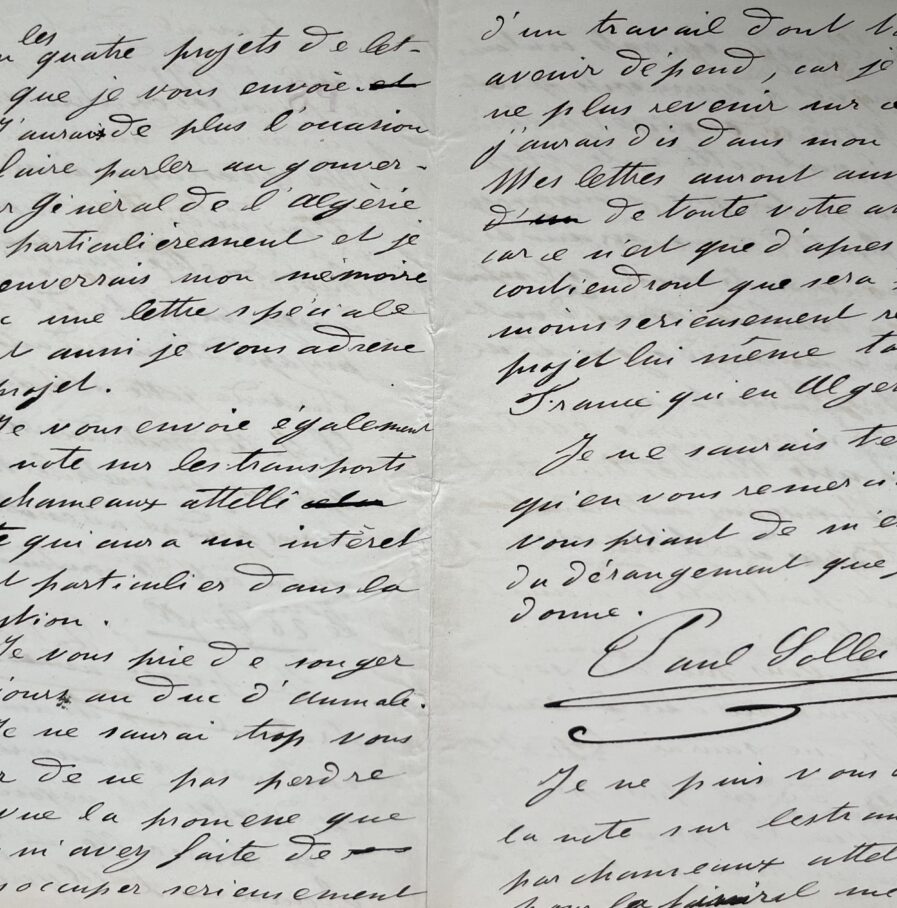 les
quatre projets de let-
que je vous envoie. et
J'aurais de plus l'occasion
faire parler au gouver-
r Général de l'Algérie
particulièrement et je
enverrais mon mémoire
une lettre spéciale
t aussi je vous adresse
projet.
Je vous envoie également
note sur les transports
chameaux attelés
te qui aura un intéret
t particulier dans la
stion.
Je vous prie de songer
jours au duc d'Aumale.
Je ne saurai trop vous
r de ne pas perdre
vue la promesse que
m'avez faite de
s occuper serieusement
d'un travail dont
avenir dépend, car je
ne plus revenir sur ce
j'aurais dis dans mon
Mes lettres auront
d'un de toute votre
car ce n'est que d'apres
contiendront que sera
moins serieusement
projet lui même
France qu'en Alger
Je ne saurais te
qu'en vous remerci
vous priant de m'e
du dérangement que
donne.
Paul Solle
Je ne puis vous
la note sur les tran
par chameaux attel